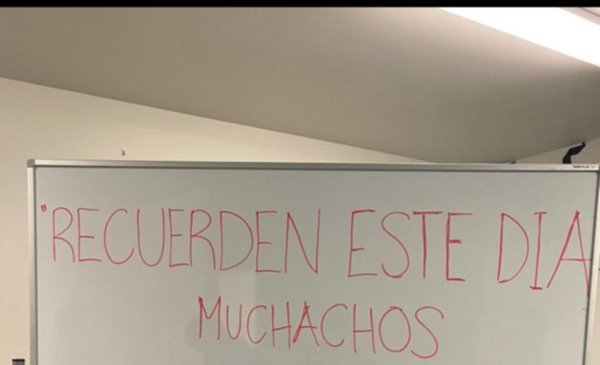 "RECUERDEN ESTE DIA
MUCHACHOS